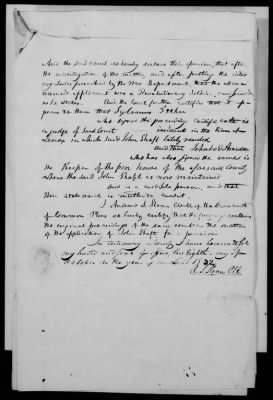 And the said court do hereby declare their opinion, that after
the investigation of the matter, and after putting the inter
rogatories prescribed by the War Department that the above
named applicant was a Revolutionary Soldier, and served
as he states. And the Court further certifies that it ap
pears to them that Sylvanus
who signed the preceding certificate is
a judge of said Court resident in the town of
Lenox in which said John Shaft lately resided
and that
who has also signed the same is
the Keeper of the poor house of the aforesaid County
where the said John Shaft is now maintained
and is a credible person, and that
their statement is entitled to credit.
I Andrew S. Sloan Clerk of the Court
of Common Pleas do hereby certify that the foregoing contains
the original proceedings of the said court in the matter
of the application of John Shaft for a pension
In testimony whereof I have hereunto set
my hand and seal of office this Eighth day of
October in the year of our Lord 1832
A. S. Sloan Clk